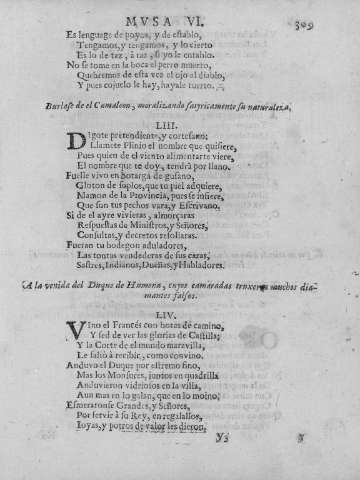 MVSA VI. 309
Es lenguage de poyos, y de establo,
Tengamos, y tengamos, y lo cierto
Es lo de taz, à taz, si yo le entablo.
No se tome en la boca el perro muerto,
Quebremos de esta vez el ojo al diablo,
Y pues cojuelo le hay, hayale tuerto.
Burlase de el Camaleon, moralizando satyricamente su naturaleza.
LIII.
DIgote pretendiente, y cortesano;
Llamete Plinio el nombre que quisiere,
Pues quien de el viento alimentarte viere,
El nombre que te doy, tendrà por llano.
Fuelle vivo en botarga de gusano,
Gloton de soplos, que tu piel adquiere,
Mamon de la Provincia, pues se infiere,
Que son tus pechos vara, y Escrivano.
Si de el ayre vivieras, almorçaras
Respuestas de Ministros, y Señores,
Consultas, y decretos resollaras.
Fueran tu bodegon aduladores,
Las tontas vendederas de sus caras,
Sastres, Indianos, Dueñas, y Habladores.
A la venida del Duque de Humena, cuyos camaradas truxeron muchos dia-
mantes falsos.
LIV.
VIno el Francés con botas de camino,
Y sed de ver las glorias de Castilla;
Y la Corte de el mundo maravilla,
Le saliò à recibir, como convino.
Anduvo el Duque por estremo fino,
Mas los Monsures, juntos en quadrilla
Anduvieron vidriosos en la villa,
Aun mas en lo galan, que en lo moino.
Esmeraronse Grandes, y Señores,
Por servir à su Rey, en regalallos,
Ioyas, y potros de valor les dieron,
Y3